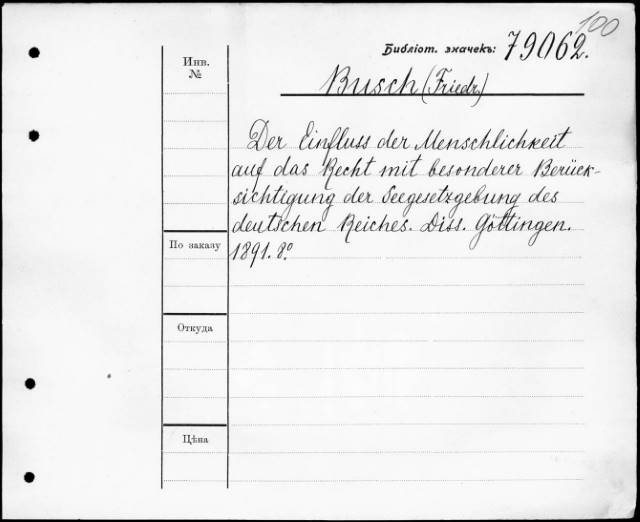 100
Библiот. значекъ: 79062.
Инв.
№
Busch (Friedr.)
Der Einfluss der Menschlichkeit
auf das Recht mit besonderer Berück-
sichtigung der Seegesetzgebung des
deutschen Reiches. Diss. Göttingen.
1891. 8º.
По заказу
Откуда
Цѣна